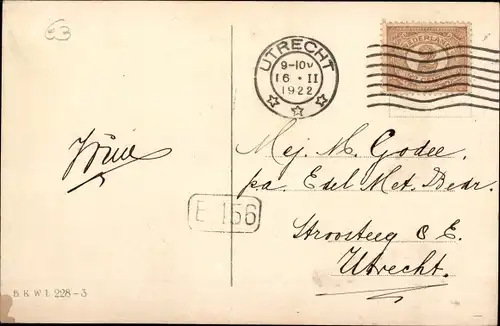 63
UTRECHT
9-10V
16 · II
1922
NEDERLAND
2
Mej. M. Godee.
pa. Edel Met. Bedr.
Stroosteeg 8 E.
Utrecht.
E 156
B.K.W.I. 228-3